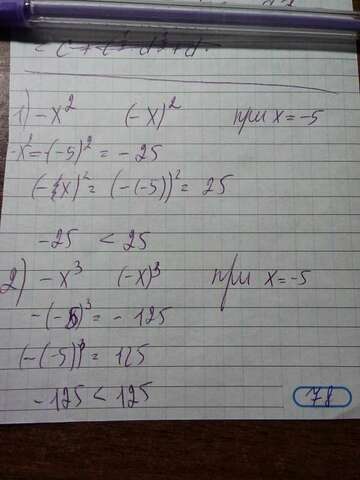 1) -x² (-x)² при x = -5
-x² = -(-5)² = -25
(-x)² = (-(-5))² = 25
-25 < 25
2) -x³ (-x)³ при x = -5
-(-5)³ = -125
(-(-5))³ = 125
-125 < 125
78